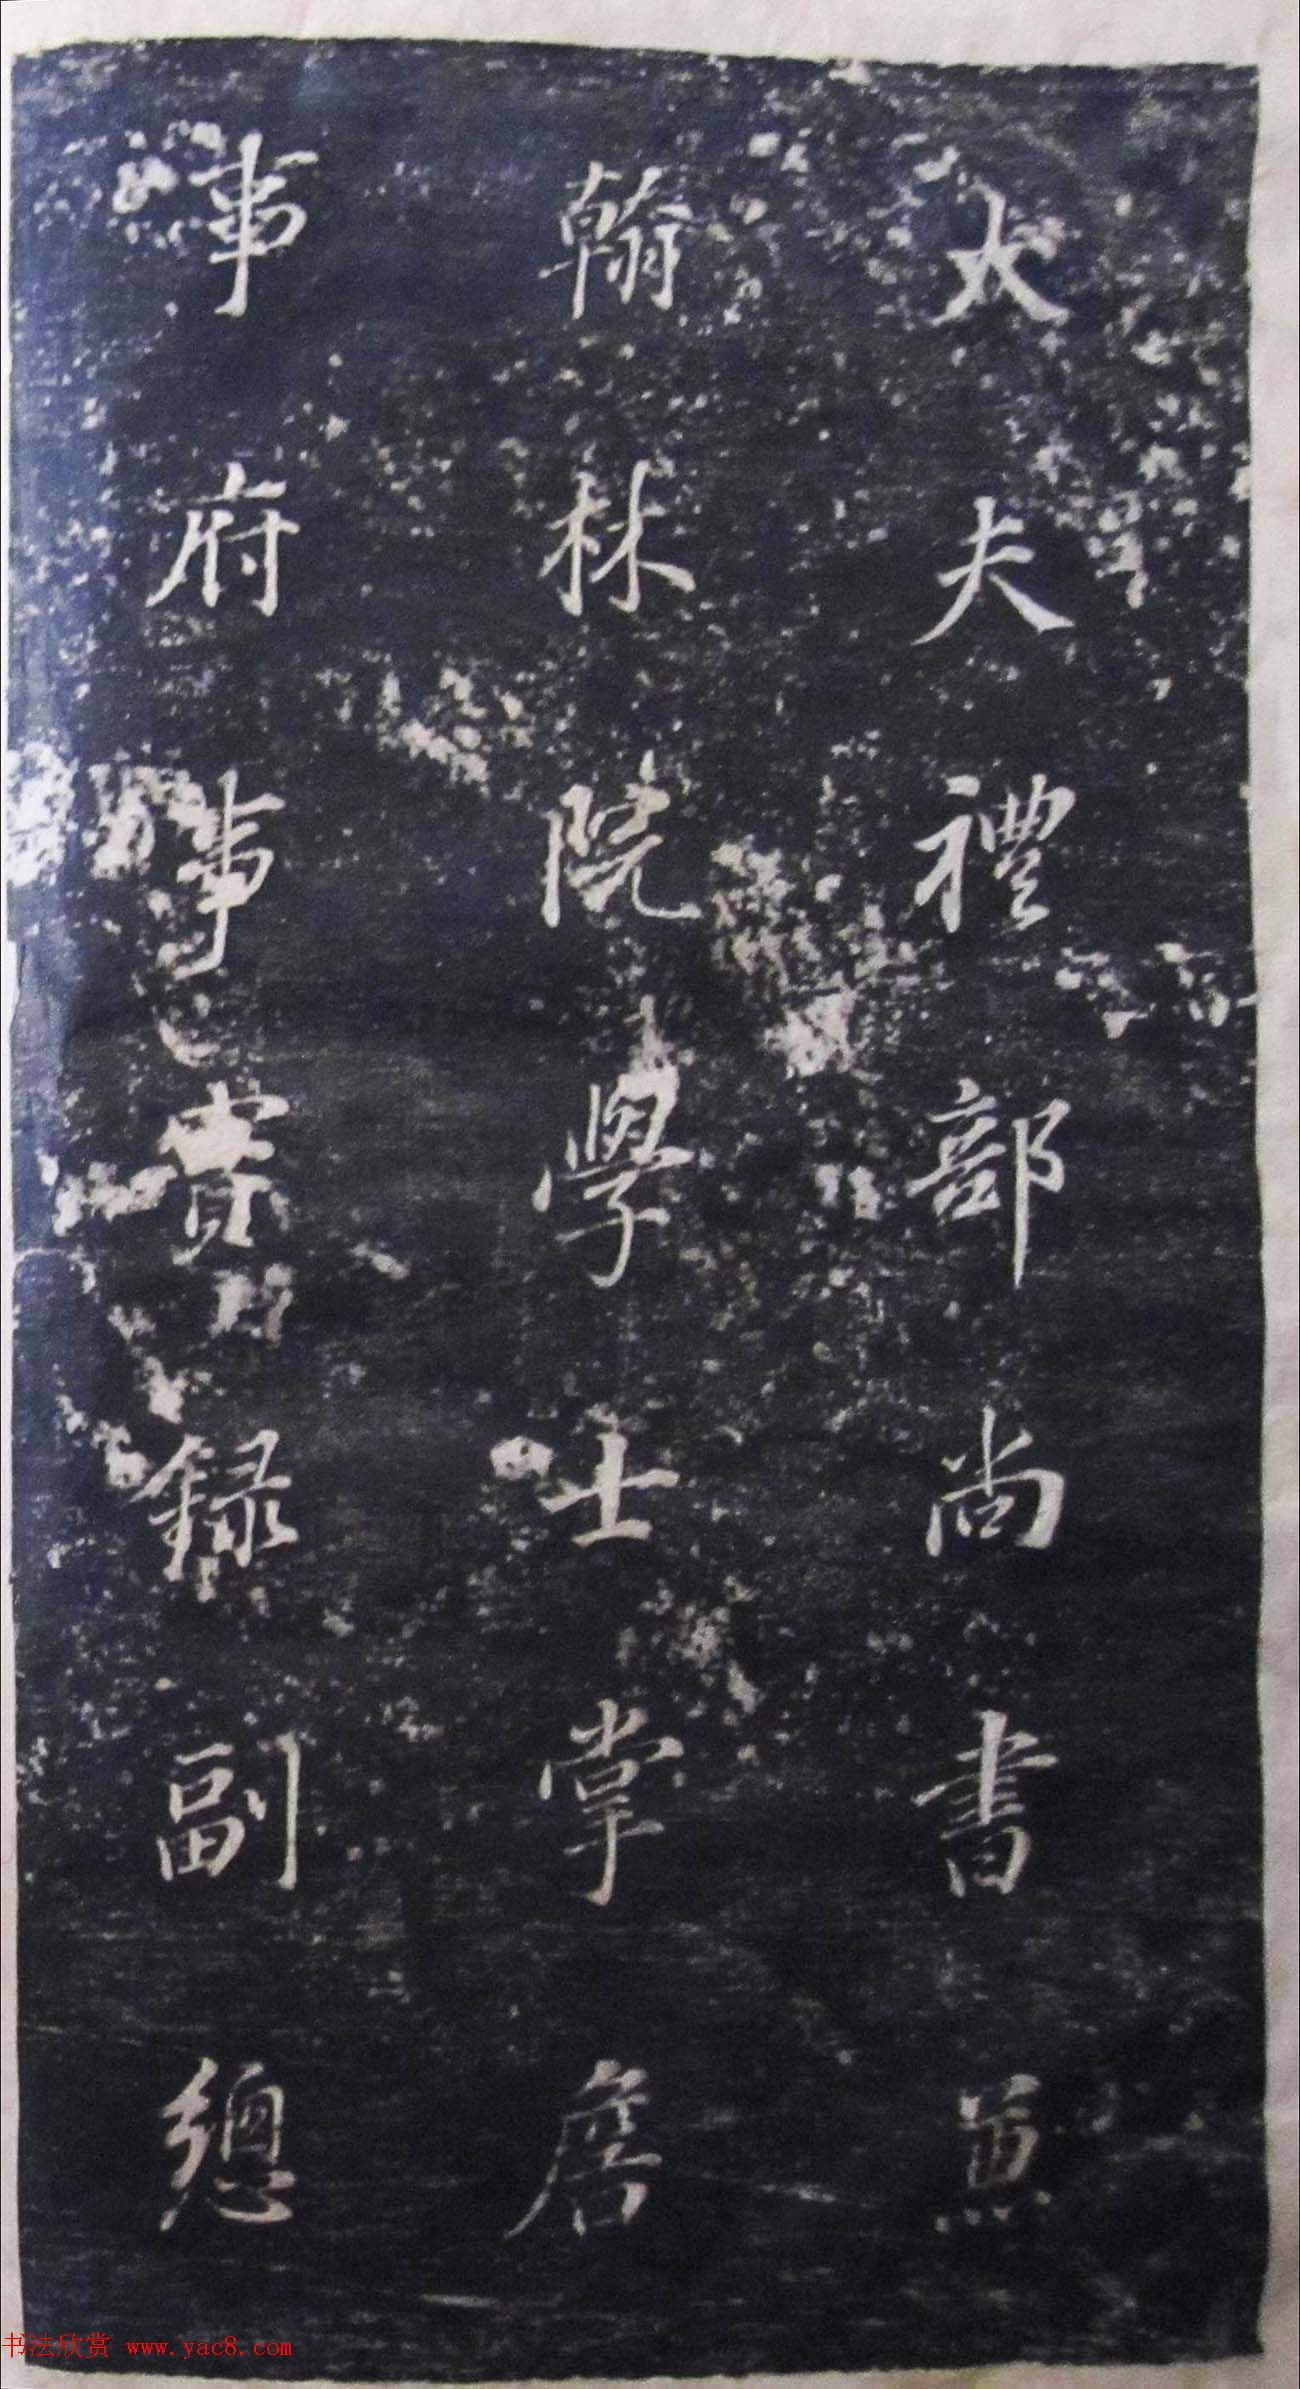 大夫禮部尚書兼
翰林院學士掌詹
事府事實録副總
书法欣赏 www.yac8.com